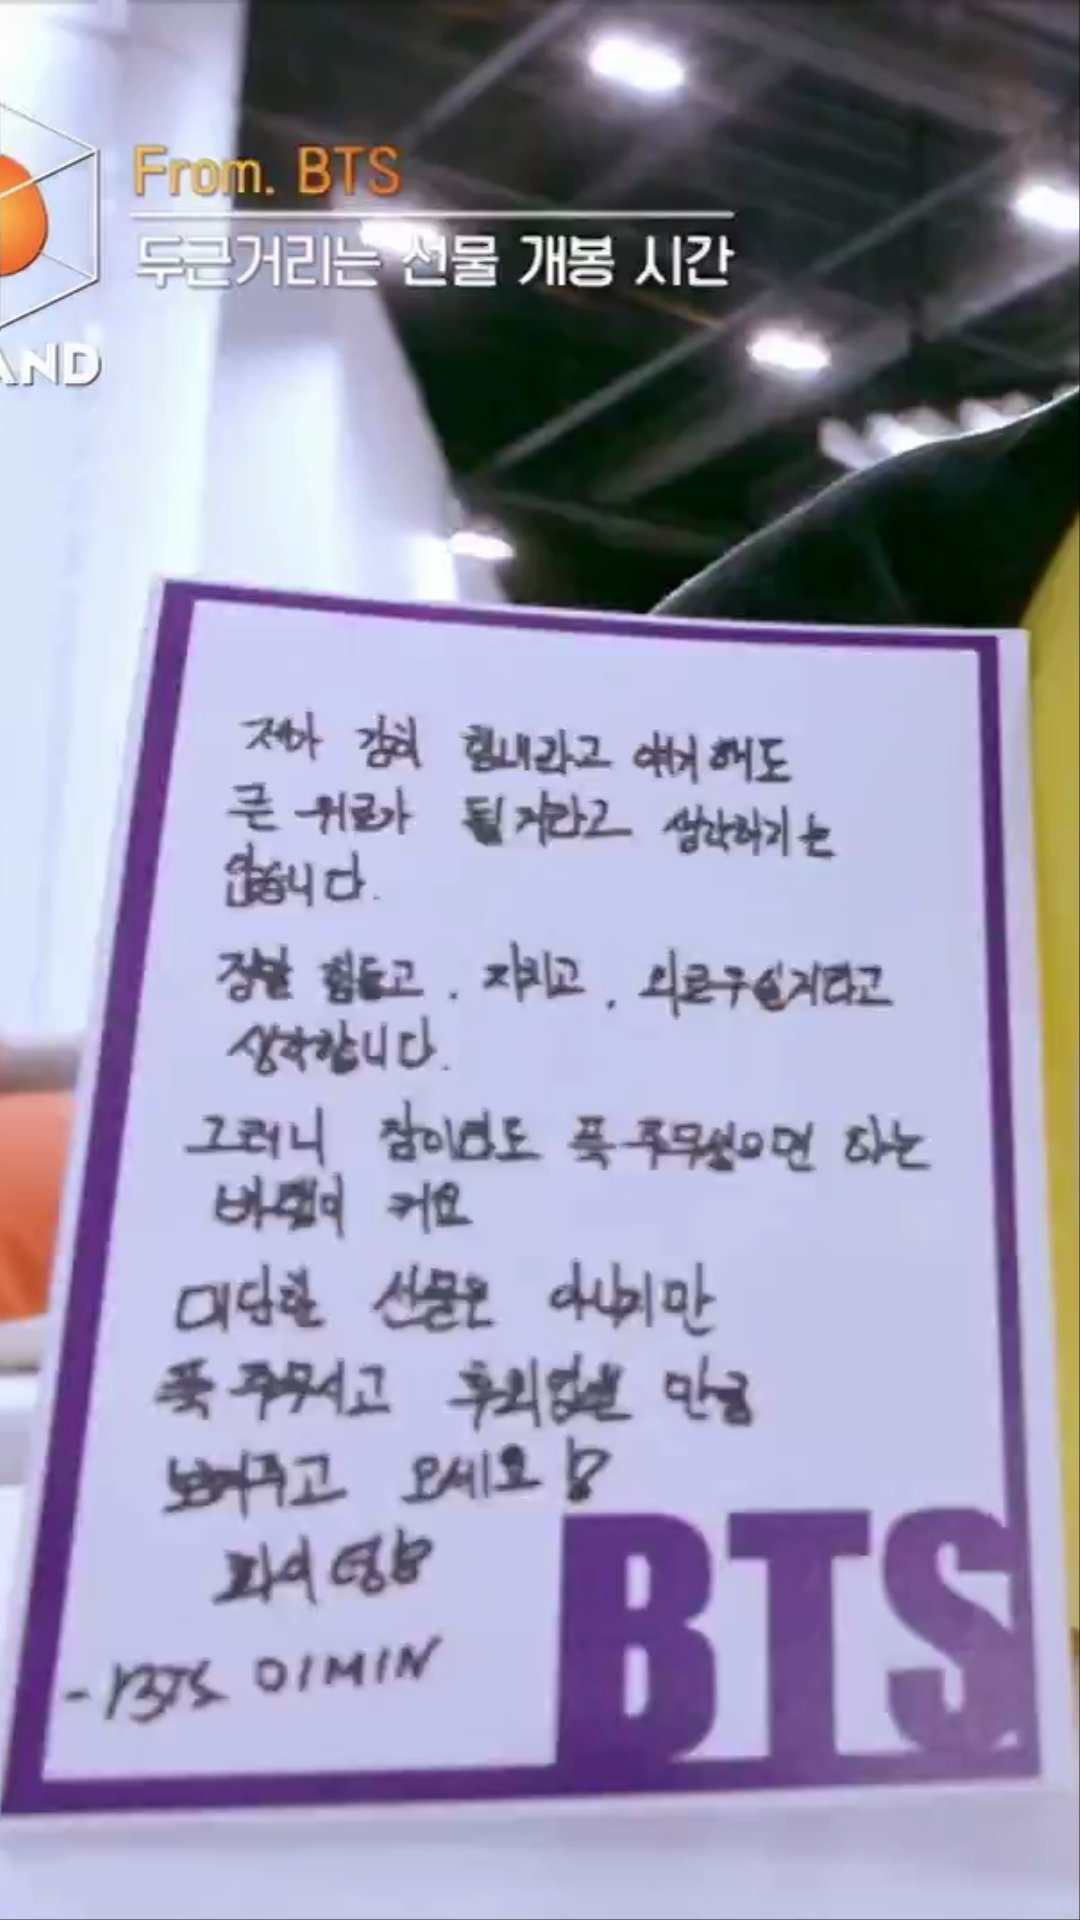 From. BTS
두근거리는 선물 개봉 시간
AND
제가 감히 힘내라고 얘기해도
큰 위로가 될거라고 생각하기는
않습니다.
정말 힘들고, 지치고, 외로우실거라고
생각합니다.
그러니 잠이라도 푹 주무셨으면 하는
바램이 커요
대단한 선물은 아니지만
푹 주무시고 후회없을 만큼
보여주고 오세요!
파이팅!
- BTS JIMIN
BTS